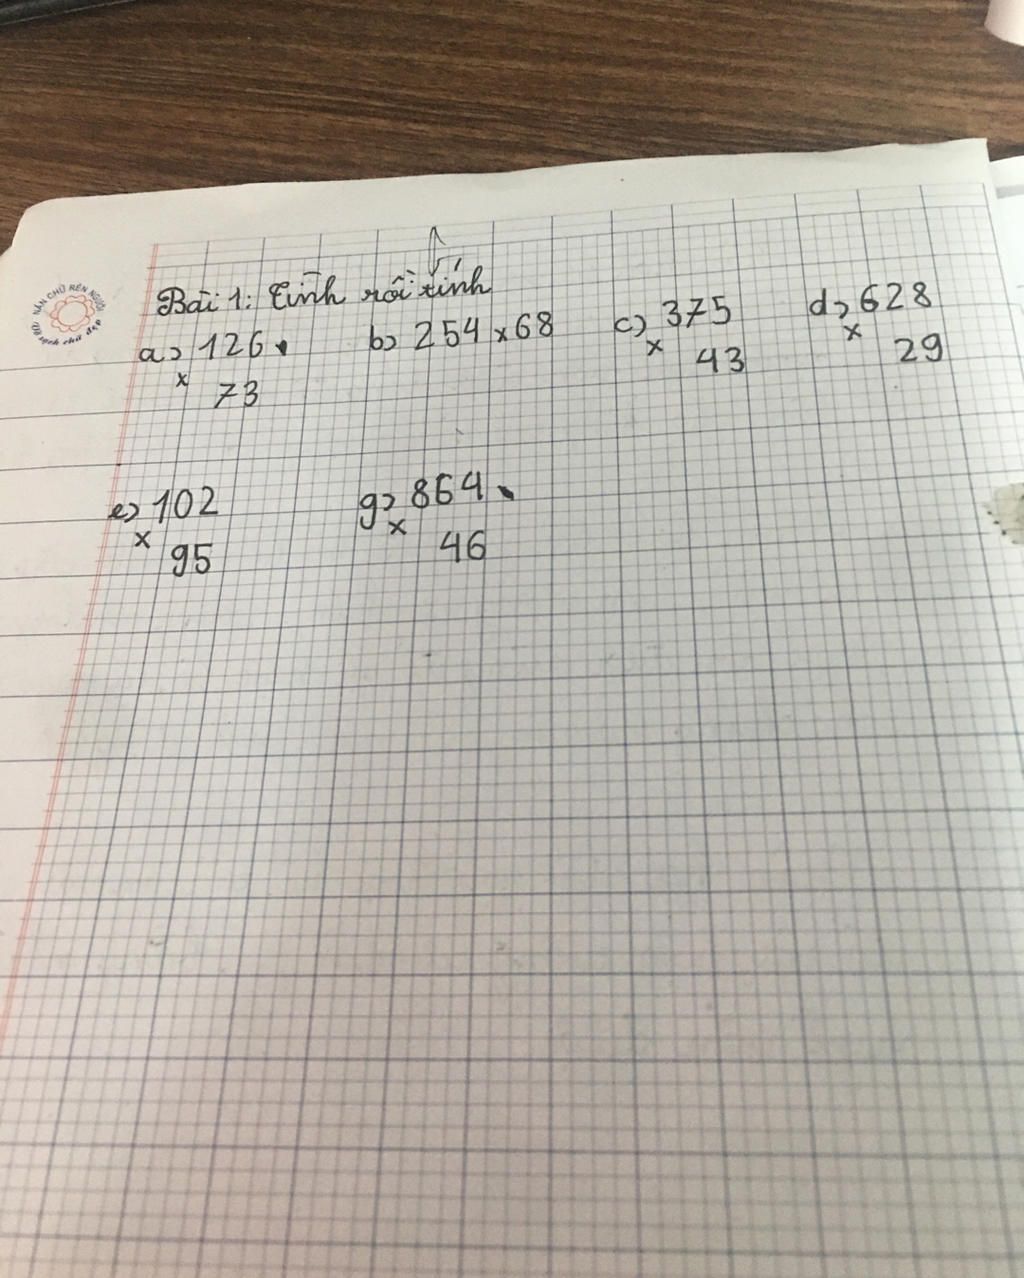 NẮN CHỮ RÈN NGƯỜI
Giữ vở sạch chữ đẹp
Bài 1: Tính rồi tính
a) 126 b) 254 x 68 c) 375 d) 628
x x 43 x 29
x 73
e) 102 g) 864
x 95 x 46